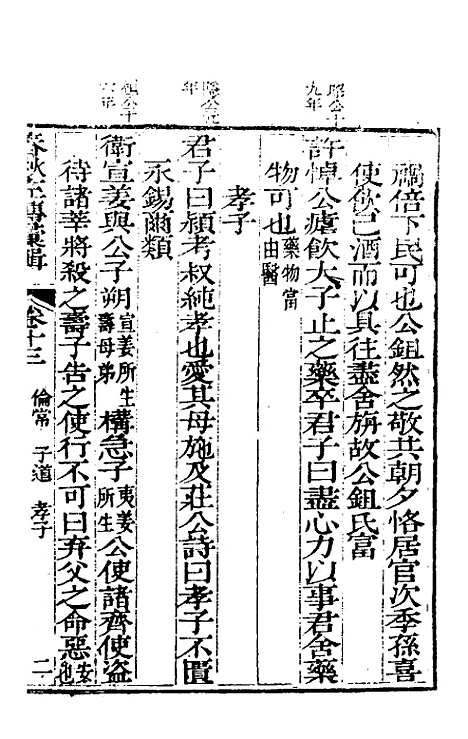 禍倍下民可也公鉏然之敬共朝夕恪居官次季孫喜
使飲己酒而以具往盡舍旃故公鉏氏富
昭公十
九年
許悼公瘧飲大子止之藥卒君子曰盡心力以事君舍藥
物可也藥物當
由醫
孝子
隱公元
年
君子曰潁考叔純孝也愛其母施及莊公詩曰孝子不匱
永錫爾類
桓公十
六年
衛宣姜與公子朔宣姜所生
壽母弟構急子夷姜
所生公使諸齊使盜
待諸莘將殺之壽子告之使行不可曰弃父之命惡安
也
春秋左傳彙輯
卷十三
倫常 子道 孝子
二